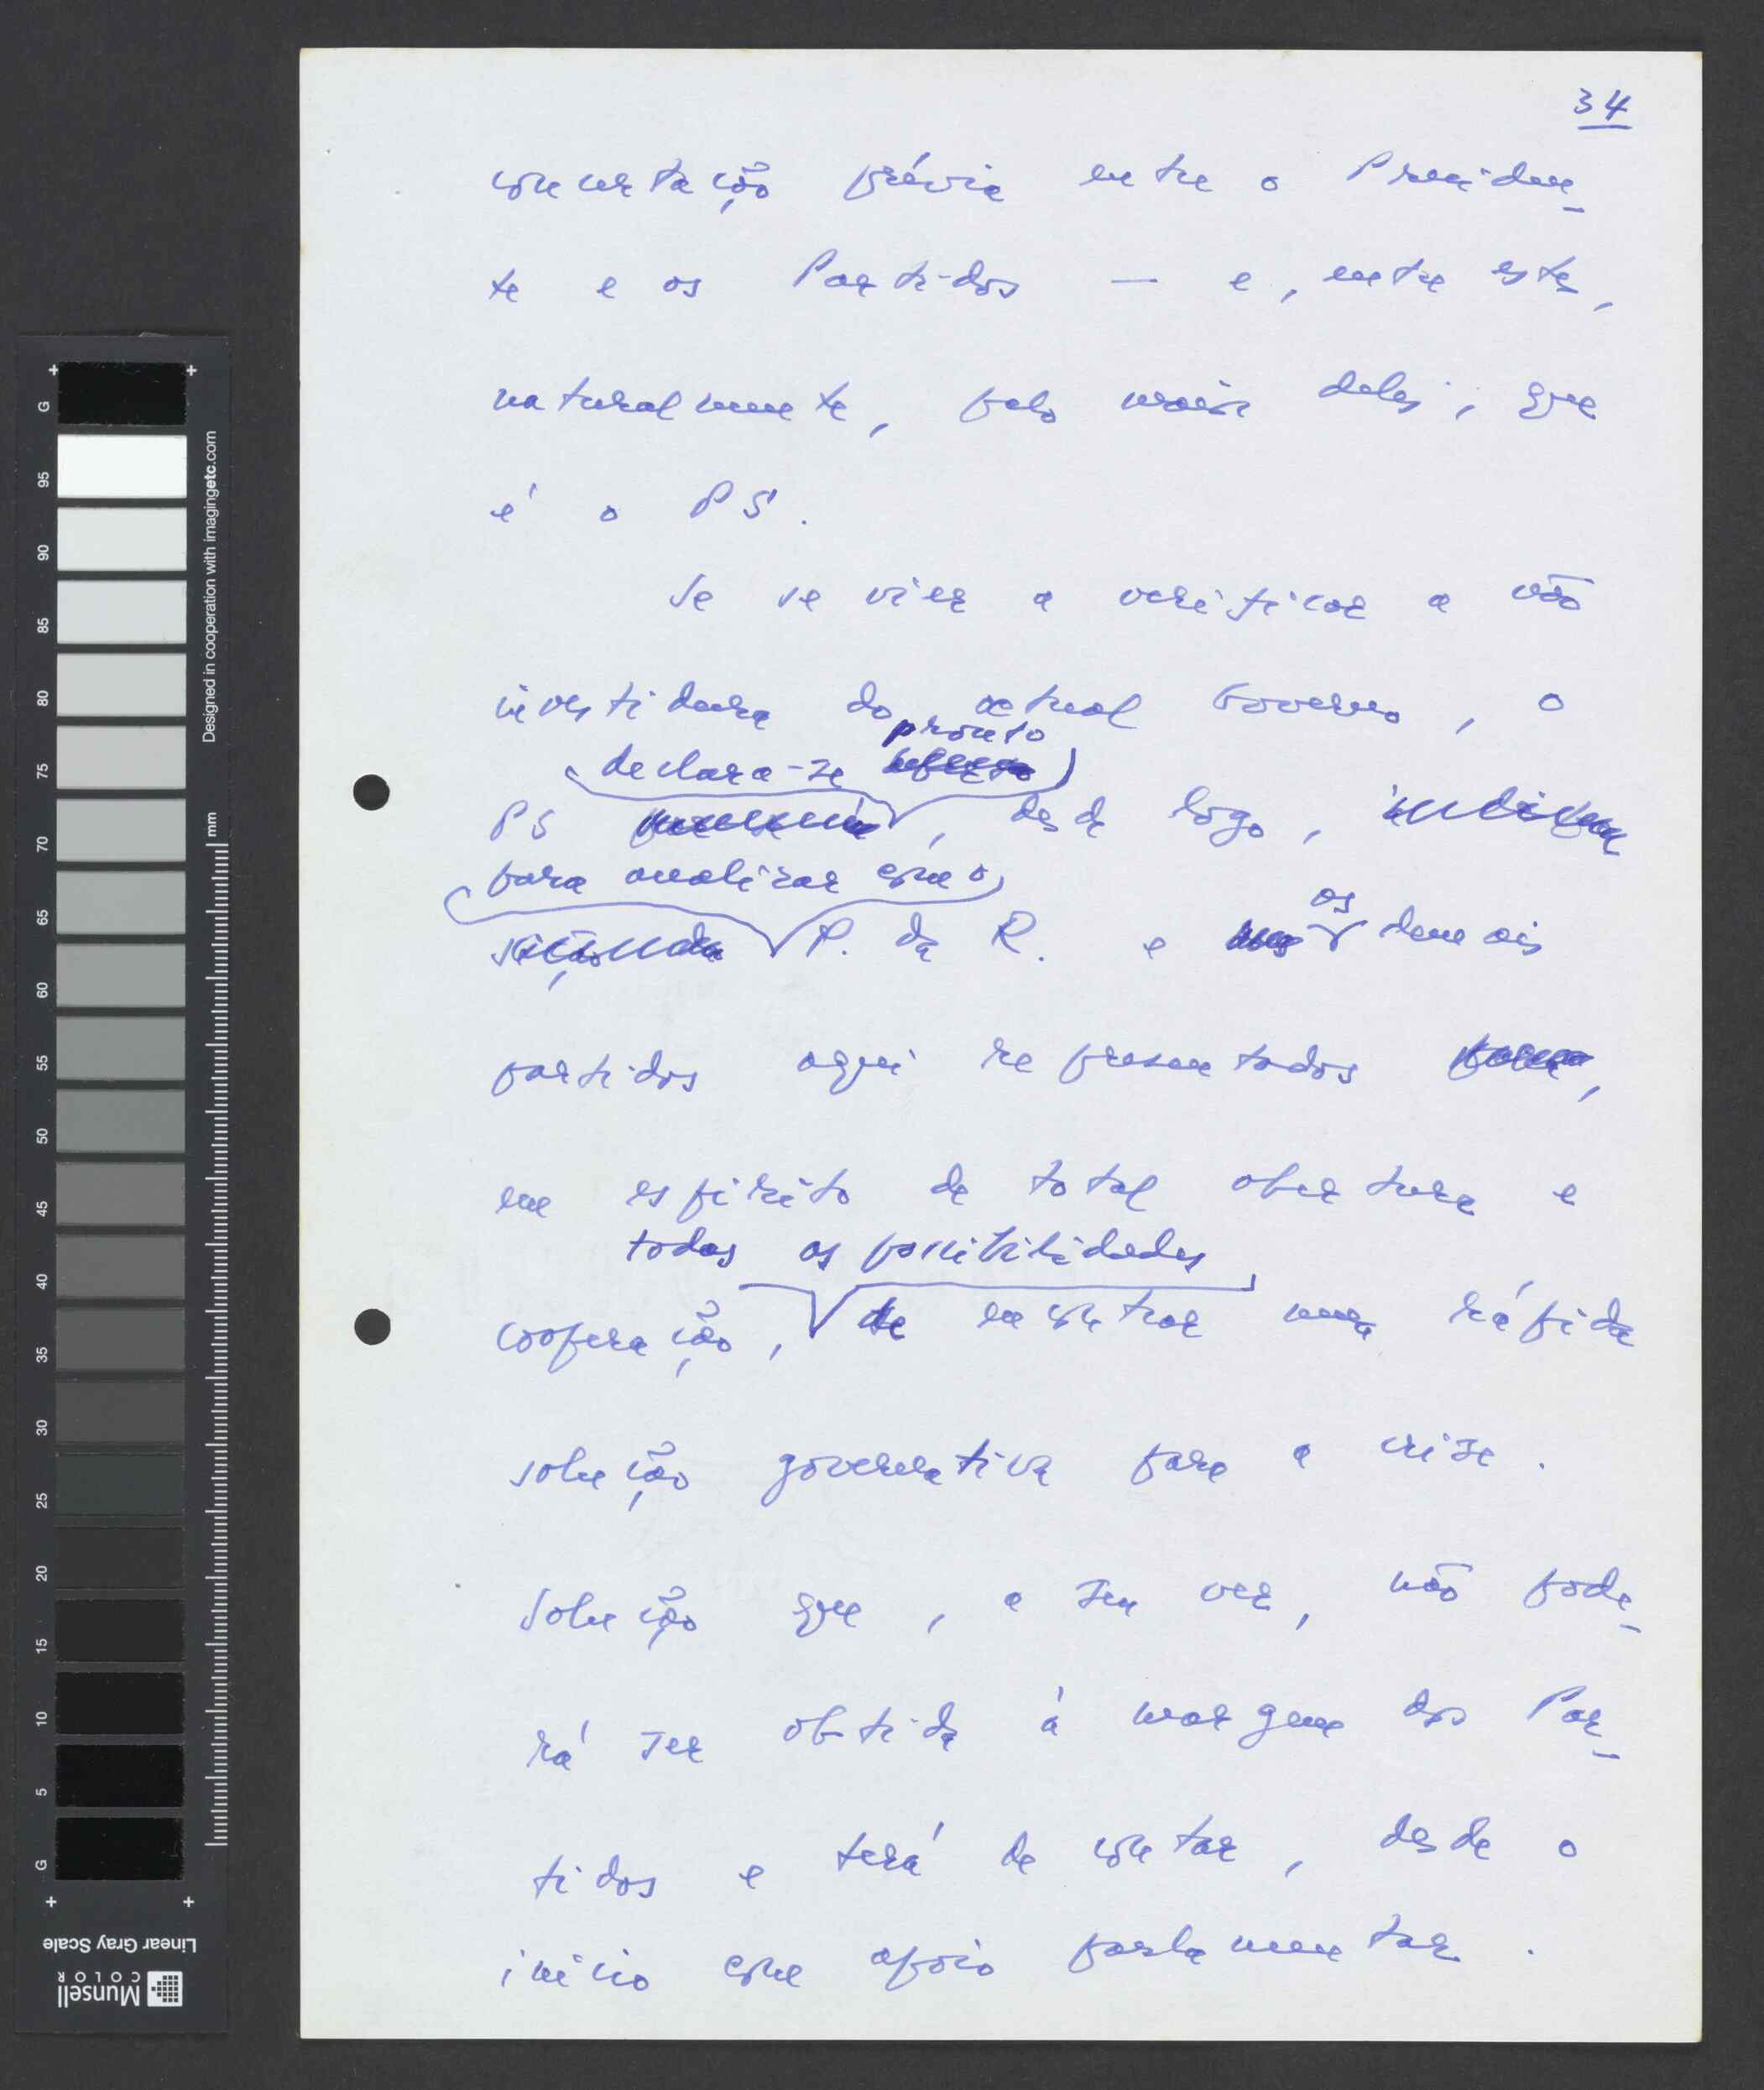 34
concertação prévia entre o Presiden-
te e os Partidos — e, entre estes,
naturalmente, pelo maior deles, que
é o PS.
Se se vier a verificar a não
investidura do actual Governo, o
pronto
declara-se
PS , desde logo,
para analisar com o
P. da R. e os demais
partidos aqui representados ,
em espírito de total abertura e
todas as possibilidades
cooperação, de encontrar uma rápida
solução governativa para a crise.
Solução que, a seu ver, não pode-
rá ser obtida à margem dos Par-
tidos e terá de contar, desde o
início com apoio parlamentar.
G
95
90
85
80
75
70
65
60
55
50
45
40
35
30
25
20
15
10
5
G
mm
Designed in cooperation with imagingetc.com
Linear Gray Scale
Munsell
COLOR